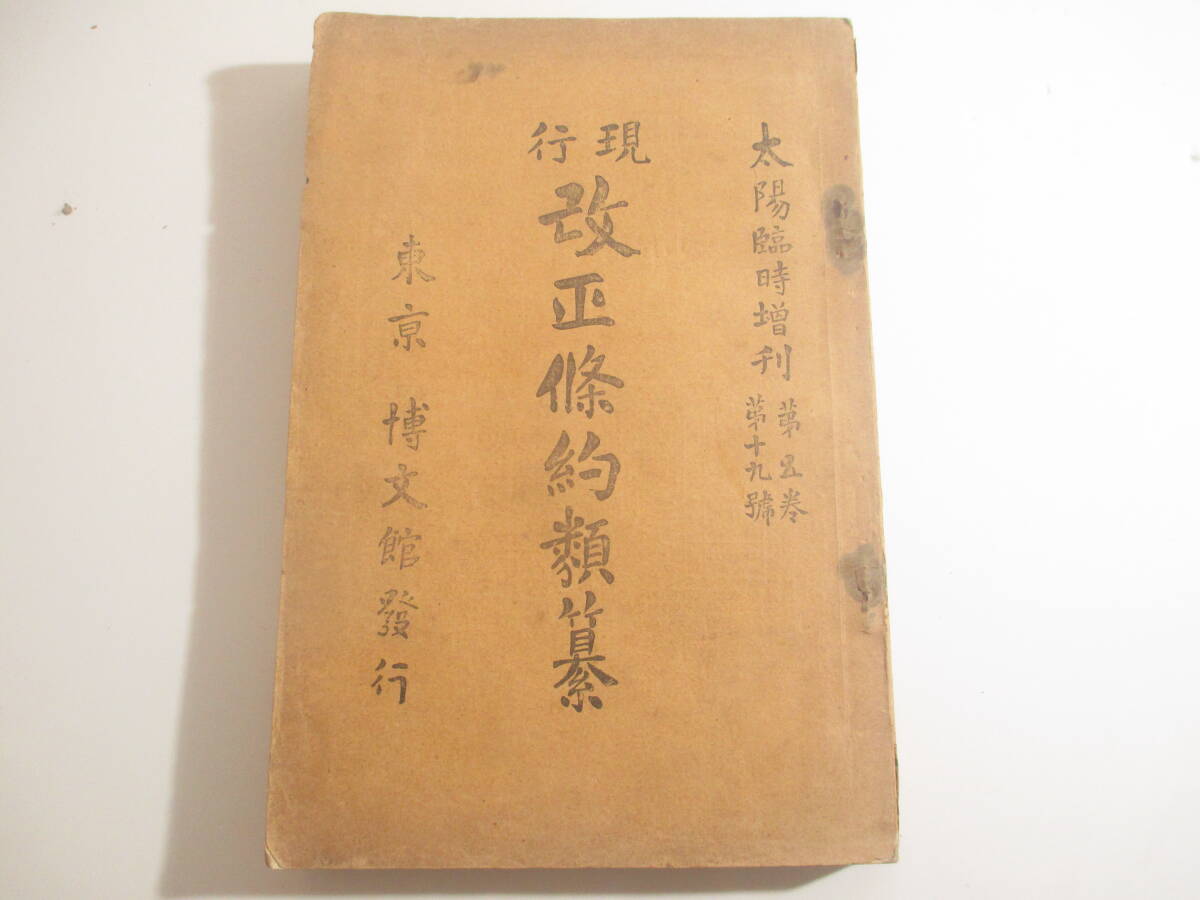 太陽臨時增刊
第五卷
第十九號
現行
改正條約類纂
東京 博文館發行